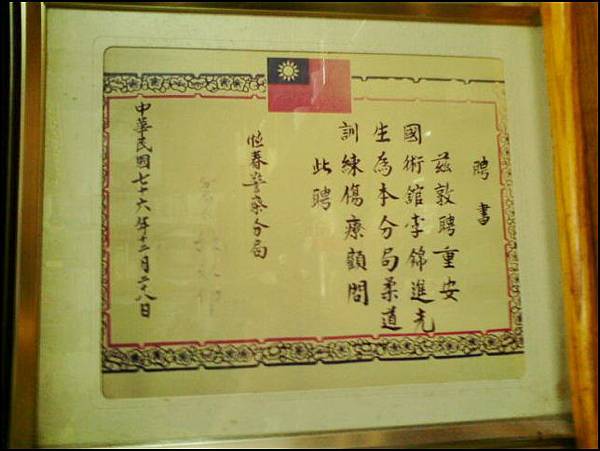 聘書
茲敦聘重安
國術館李錦進先
生為本分局柔道
訓練傷療顧問
此聘
恆春警察分局
中華民國七十六年十二月二十八日